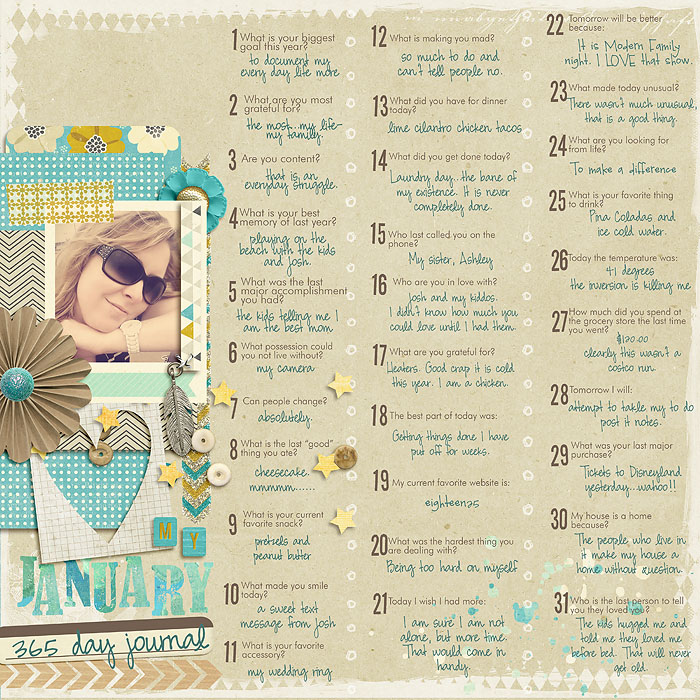 1 What is your biggest
goal this year?
to document my
every day life more
2 What are you most
grateful for?
the most...my life-
my family.
3 Are you content?
that is an
everyday struggle.
4 What is your best
memory of last year?
playing on the
beach with the kids
and Josh.
5 What was the last
major accomplishment
you had?
the kids telling me I
am the best mom
6 What possession could
you not live without?
my camera
7 Can people change?
absolutely.
8 What is the last "good"
thing you ate?
cheesecake.
mmmmm......
9 What is your current
favorite snack?
pretzels and
peanut butter
10 What made you smile
today?
a sweet text
message from Josh
11 What is your favorite
accessory?
my wedding ring
12 What is making you mad?
so much to do and
can't tell people no.
13 What did you have for dinner
today?
lime cilantro chicken tacos
14 What did you get done today?
Laundry day...the bane of
my existence. It is never
completely done.
15 Who last called you on the
phone?
My sister, Ashley
16 Who are you in love with?
Josh and my kiddos.
I didn't know how much you
could love until I had them.
17 What are you grateful for?
Heaters. Good crap it is cold
this year. I am a chicken.
18 The best part of today was:
Getting things done I have
put off for weeks.
19 My current favorite website is:
eighteen25
20 What was the hardest thing you
are dealing with?
Being too hard on myself
21 Today I wish I had more:
I am sure I am not
alone, but more time.
That would come in
handy.
22 Tomorrow will be better
because:
It is Modern Family
night. I LOVE that show.
23 What made today unusual?
There wasn't much unusual,
that is a good thing.
24 What are you looking for
from life?
To make a difference
25 What is your favorite thing
to drink?
Pina Coladas and
ice cold water.
26 Today the temperature was:
41 degrees
the inversion is killing me
27 How much did you spend at
the grocery store the last time
you went?
$120.00
clearly this wasn't a
costco run.
28 Tomorrow I will:
attempt to takle my to do
post it notes.
29 What was your last major
purchase?
Tickets to Disneyland
yesterday...wahoo!!
30 My house is a home
because?
The people who live in
it make my house a
home without question.
31 Who is the last person to tell
you they loved you?
The kids hugged me and
told me they loved me
before bed. That will never
get old.
MY
JANUARY
365 day journal